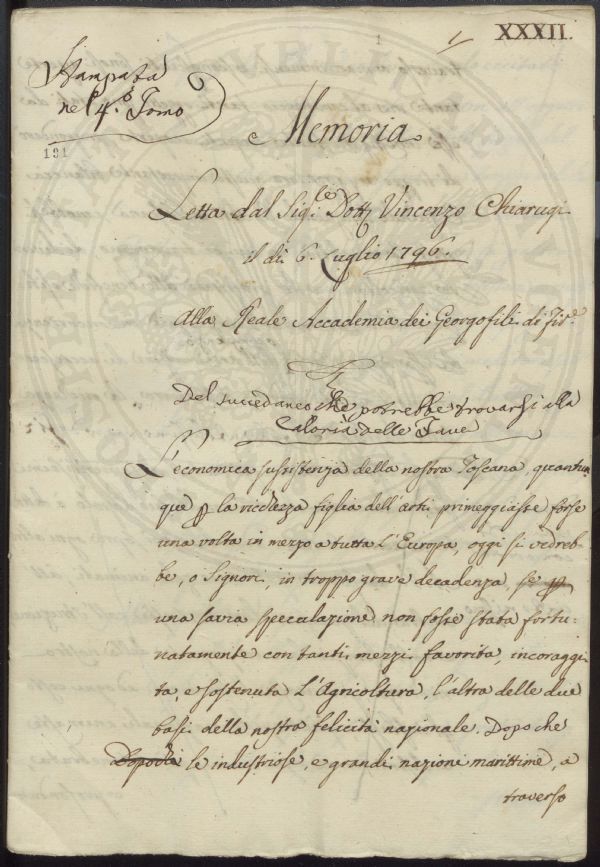 XXXII.
1
Stampata
nel 4.° Tomo
191
Memoria
Letta dal Sig.re Dott. Vincenzo Chiarugi
il dì 6. Luglio 1796.
Alla Reale Accademia dei Georgofili di Fir.e
Del succedaneo che potrebbe trovarsi alla
Caloria delle Fave
L'economica sussistenza della nostra Toscana, quantun
que p la ricchezza figlia dell'arti primeggiasse forse
una volta in mezzo a tutta l'Europa, oggi si vedreb-
be, o Signori, in troppo grave decadenza, se p
una savia speculazione non fosse stata fortu-
natamente con tanti mezzi favorita, incoraggi
ta, e sostenuta l'Agricoltura, l'altra delle due
basi della nostra felicità nazionale. Dopo che
Dopochè le industriose, e grandi nazioni marittime, a
traverso